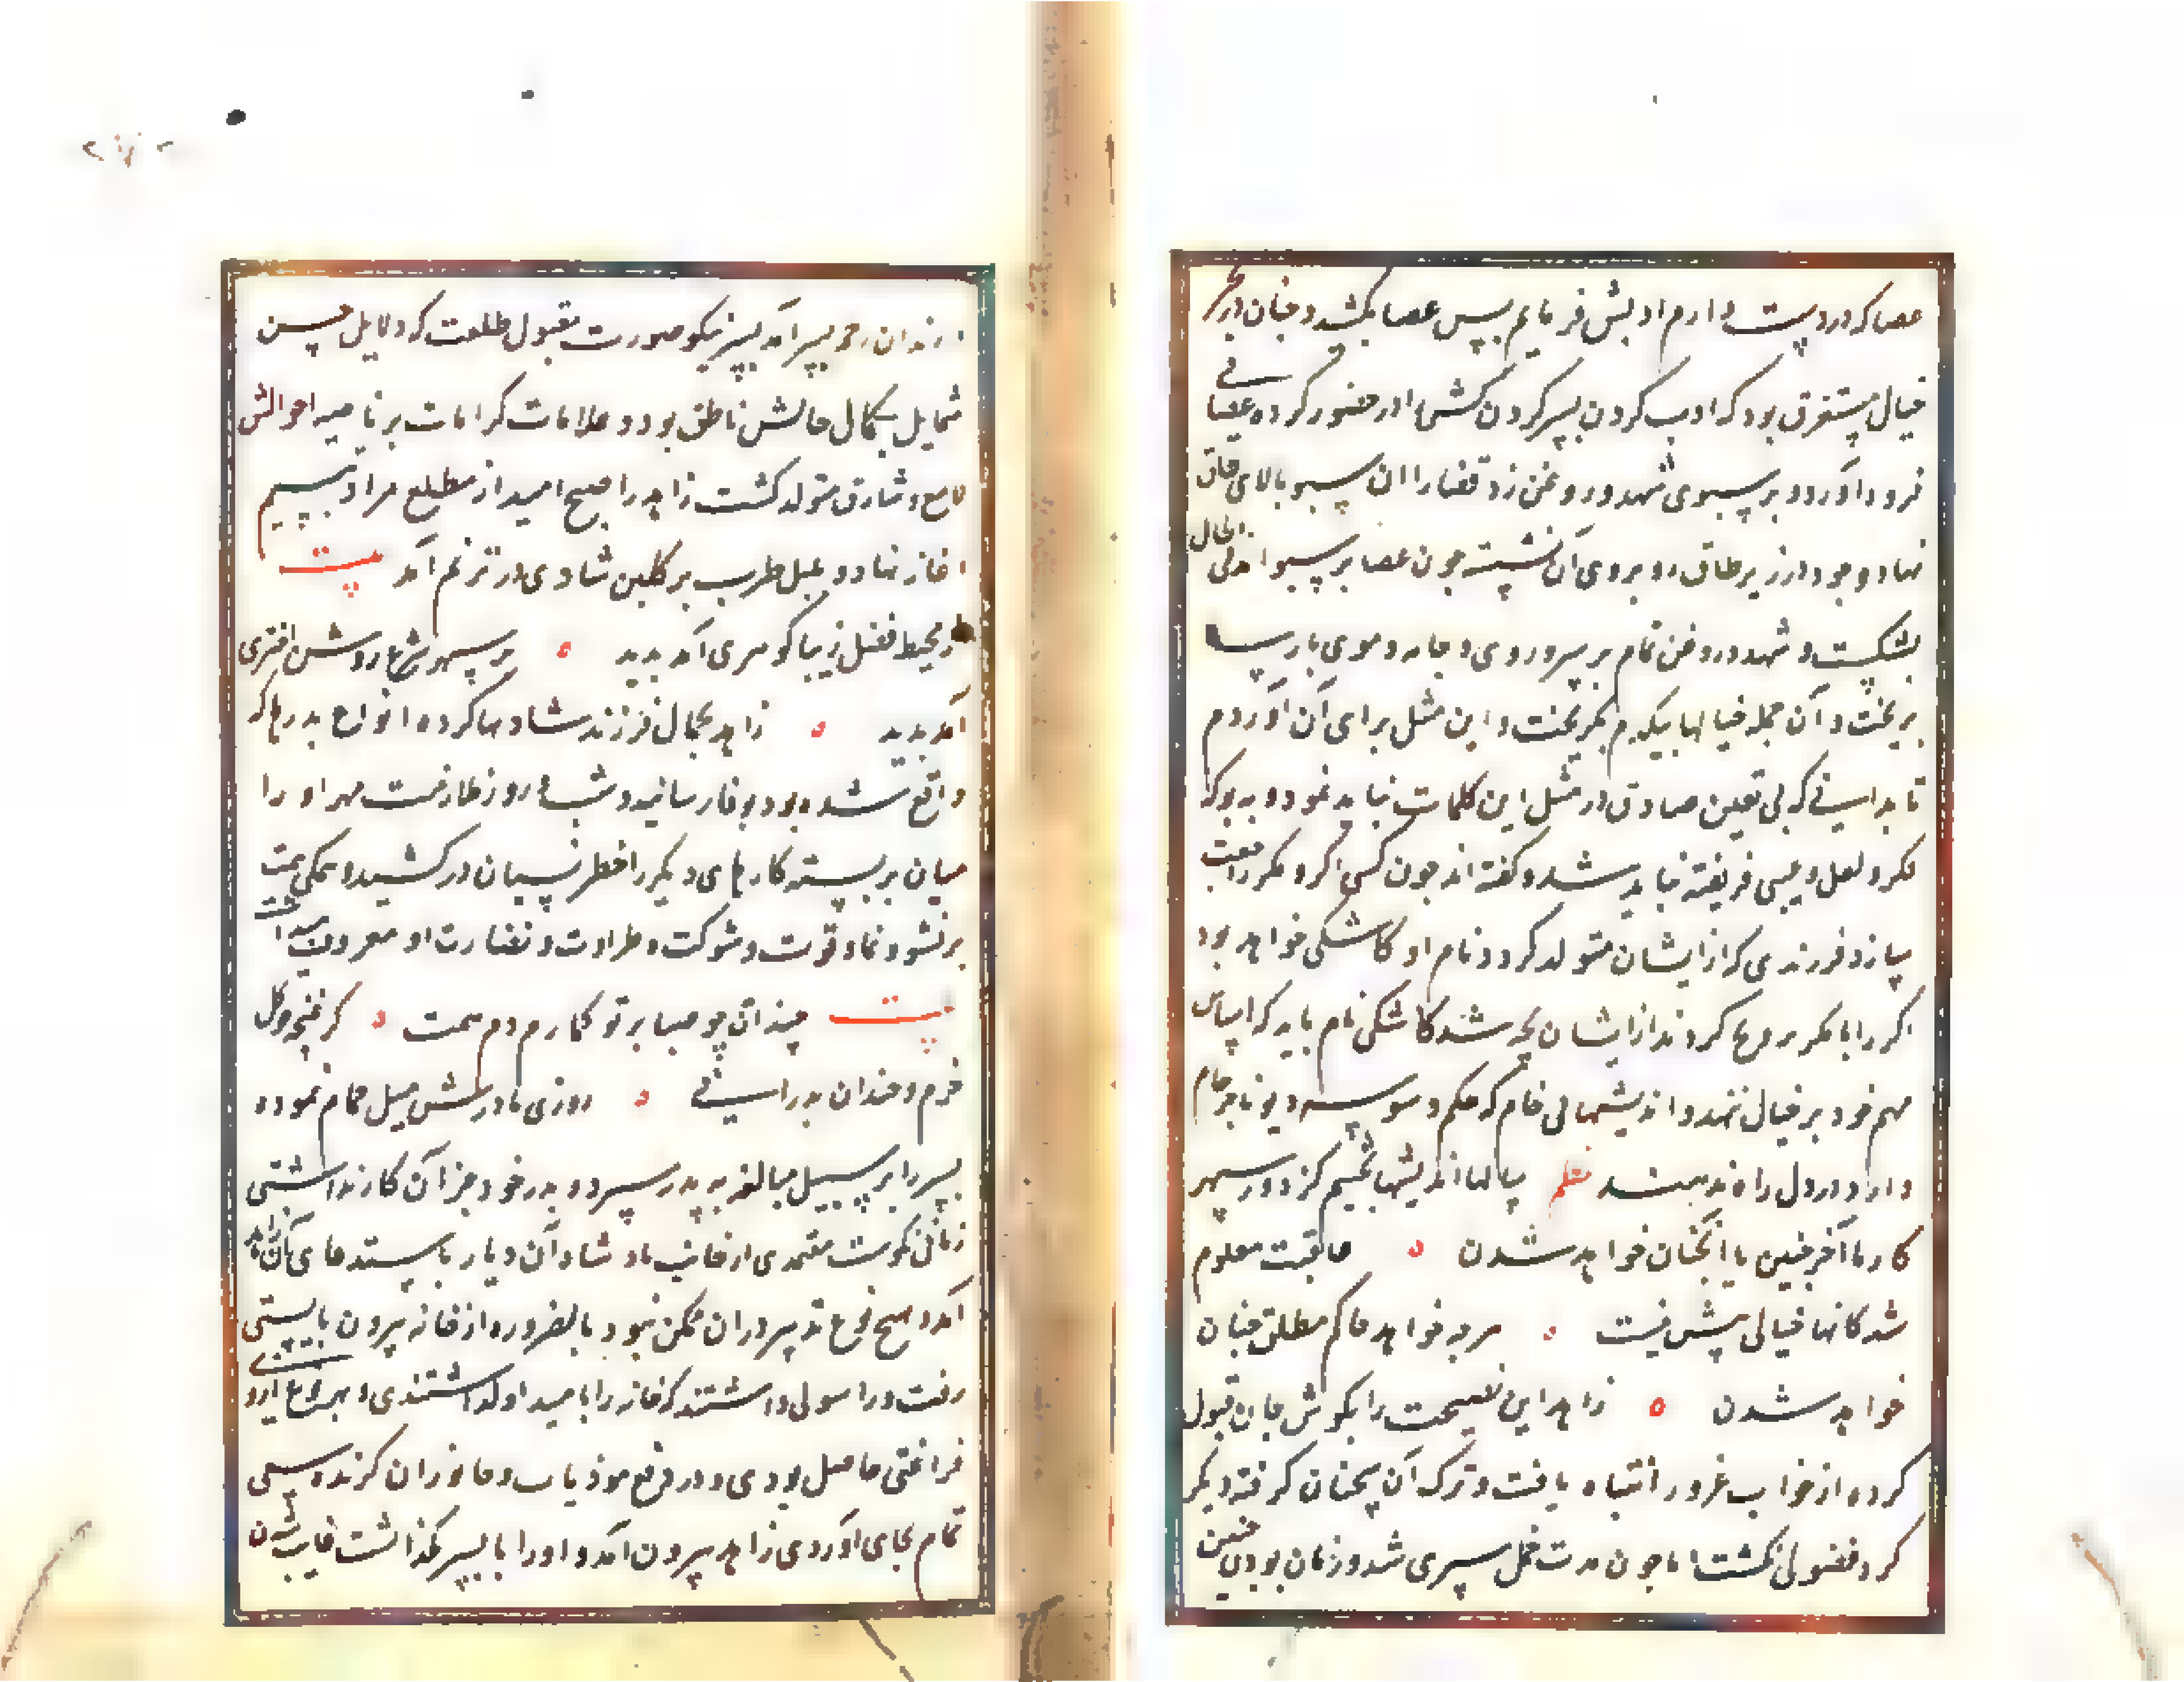 عصا که در دست دارم ادبش فرمایم پس عصا بکشید و چنان در بحر
خیال مستغرق بود که ادب کردن پسر کردن کش را در حضور کرده عصا
فرود آورد و بر سبوی شهد و روغن زد قضا را آن سبو بالای طاق
نهاده و خود در زیر طاق رو بروی آن نشسته چون عصا بر سبو آمد فی الحال
بشکست و شهد و روغن تمام بر سر و روی و جامه و موی پارسا
بریخت و آن جمله خیالها بیکدم بگریخت و این مثل برای آن آوردم
تا بدانی که بی تعین صادق در مثل این کلمات نباید نمود و به بوکه
مکر و لعل و عسی فریفته نباید شد و گفته اند چون کسی اگر و مگر را جفت
سازد فرزندی که از ایشان متولد گردد نام او کاشکی خواهد بود
اگر را با مگر کردند از ایشان بچه شد کاشکی نام باید که اساس
مهم خود بر خیال ننهد و اندیشهای خام که حکم وسوسه دیو نافرجام
دارد در دل راه ندهند نظم سالها اندیشها بختیم کز دور سپهر
کار ما آخر چنین یا آنچنان خواهد شدن ه عاقبت معلوم
شد کانها خیالی بیش نیست ه هر چه خواهد حاکم مطلق چنان
خواهد شدن ه زاهد این نصیحت را بگوش جان قبول
کرده از خواب غرور انتباه یافت و ترک آن سخنان گرفته دیگر
گرد فضولی نگشت اما چون مدت حمل سپری شد و زمان بودن جنین
در زندان رحم بسر آمد پسر نیکو صورت مقبول طلعت که دلایل حسن
شمایل بکمال حالش ناطق بود و علامات کرامات بر ناصیه احوالش
لامع و شارق متولد گشت زاهد را صبح امید از مطلع مراد تبسم
آغاز نهاد و بلبل طرب بر گلبن شادی در ترنم آمد بیت
از محیط فضل زیبا گوهری آمد پدید ه بر سپهر شرع روشن اختری
آمد پدید ه زاهد بجمال فرزند شادیها کرده انواع نذرها که
واقع شده بود بوفا رسانید و شب و روز ملازمت مهد او را
میان بر بسته کارهای دیگر را خط نسیان در کشید و همگی همت
بر نشو و نما و قوت و شوکت و طراوت و نضارت او مصروف داشت
بیت چندان چو صبا بر تو گمارم دم همت ه کز غنچه گل
خرم و خندان بدر آیی ه روزی مادرش میل حمام نموده
پسر را بر سبیل مبالغه به پدر سپرد و پدر خود جز آن کار نداشتی
زمانی بگذشت معتمدی از جانب پادشاه آن دیار باستدعای زاهد
آمد و هیچ نوع تدبیر در آن ممکن نبود بالضروره از خانه بیرون بایستی
رفت و راسویی داشتند که خانه را بامید او گذاشتندی و بهر نوع از وی
فراغتی حاصل بودی و در دفع موذیات و جانوران گزنده سعی
تمام بجای آوردی زاهد بیرون آمد و او را با پسر بگذاشت غایب شدن